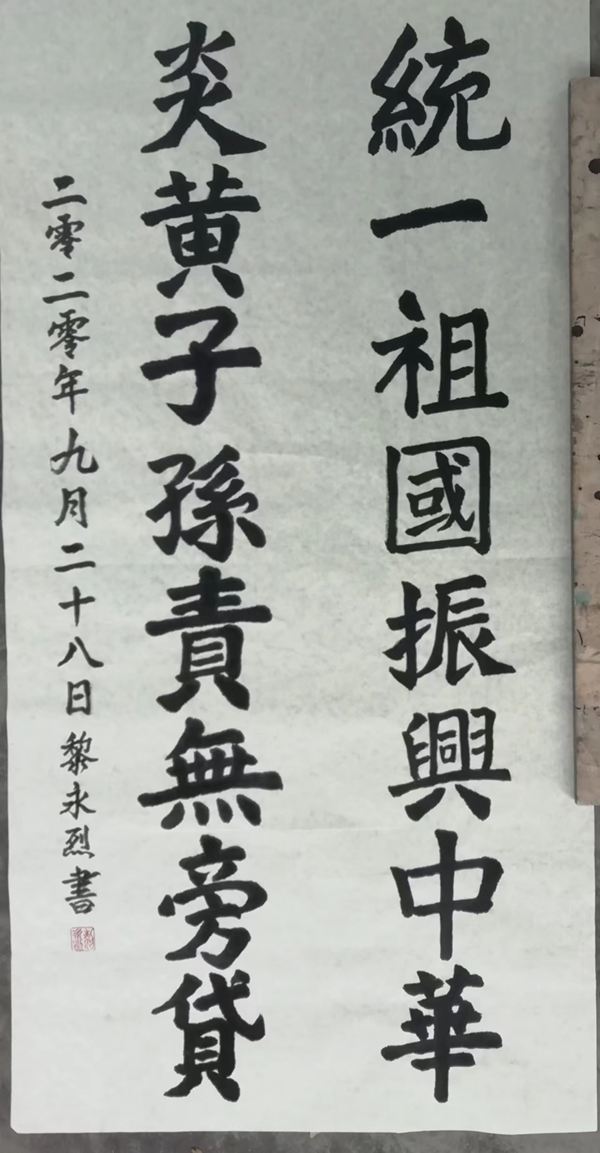 統一祖國振興中華
炎黃子孫責無旁貸
二零二零年九月二十八日黎永烈書